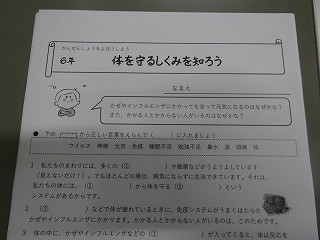 かんせんしょうをとぼうしよう
6年 体を守るしくみを知ろう
なまえ
かぜやインフルエンザにかかっても治って元気になるのはなぜかな?
また、かかる人とかからない人がいるのはなぜかな?
● 下の から正しい言葉をえらんで( )に入れましょう
ウイルス 神様 元気 免疫 睡眠不足 勉強不足 鼻水 涙 頭痛
1 私たちのまわりには、多くの(① )や細菌などがうようよしています
(見えないだけ!)。でもほとんどの場合、病気にならずに生活できています。それは、
私たちの体には、(① )から体を守る(② )という
システムがあるからです。
2 (③ )などで体が疲れているときに、免疫システムがうまくはたらか
かぜやインフルエンザにかかります。かかる人とかからない人がいるのは、このためです。
3 体の中に、かぜやインフルエンザなどの(① )が入ってくると、体は反応を